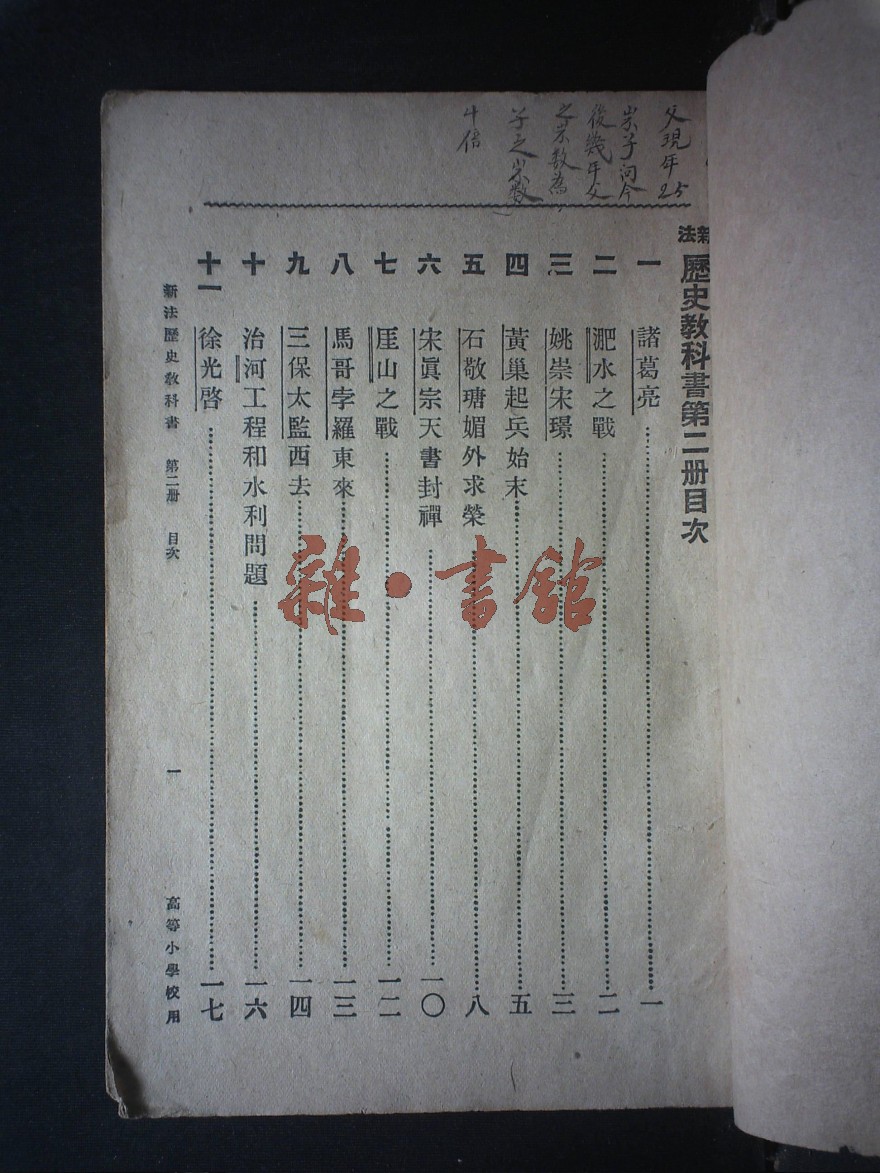 父現年25
歲子問今
後幾年父
之歲數為
子之歲數
十倍
新法
歷史教科書第二册目次
一 諸葛亮……一
二 淝水之戰……二
三 姚崇宋璟……三
四 黃巢起兵始末……五
五 石敬瑭媚外求榮……八
六 宋眞宗天書封禪……一〇
七 厓山之戰……一二
八 馬哥孛羅東來……一三
九 三保太監西去……一四
十 治河工程和水利問題……一六
十一 徐光啓……一七
新法歷史教科書 第二册 目次 一 高等小學校用
雜·書館